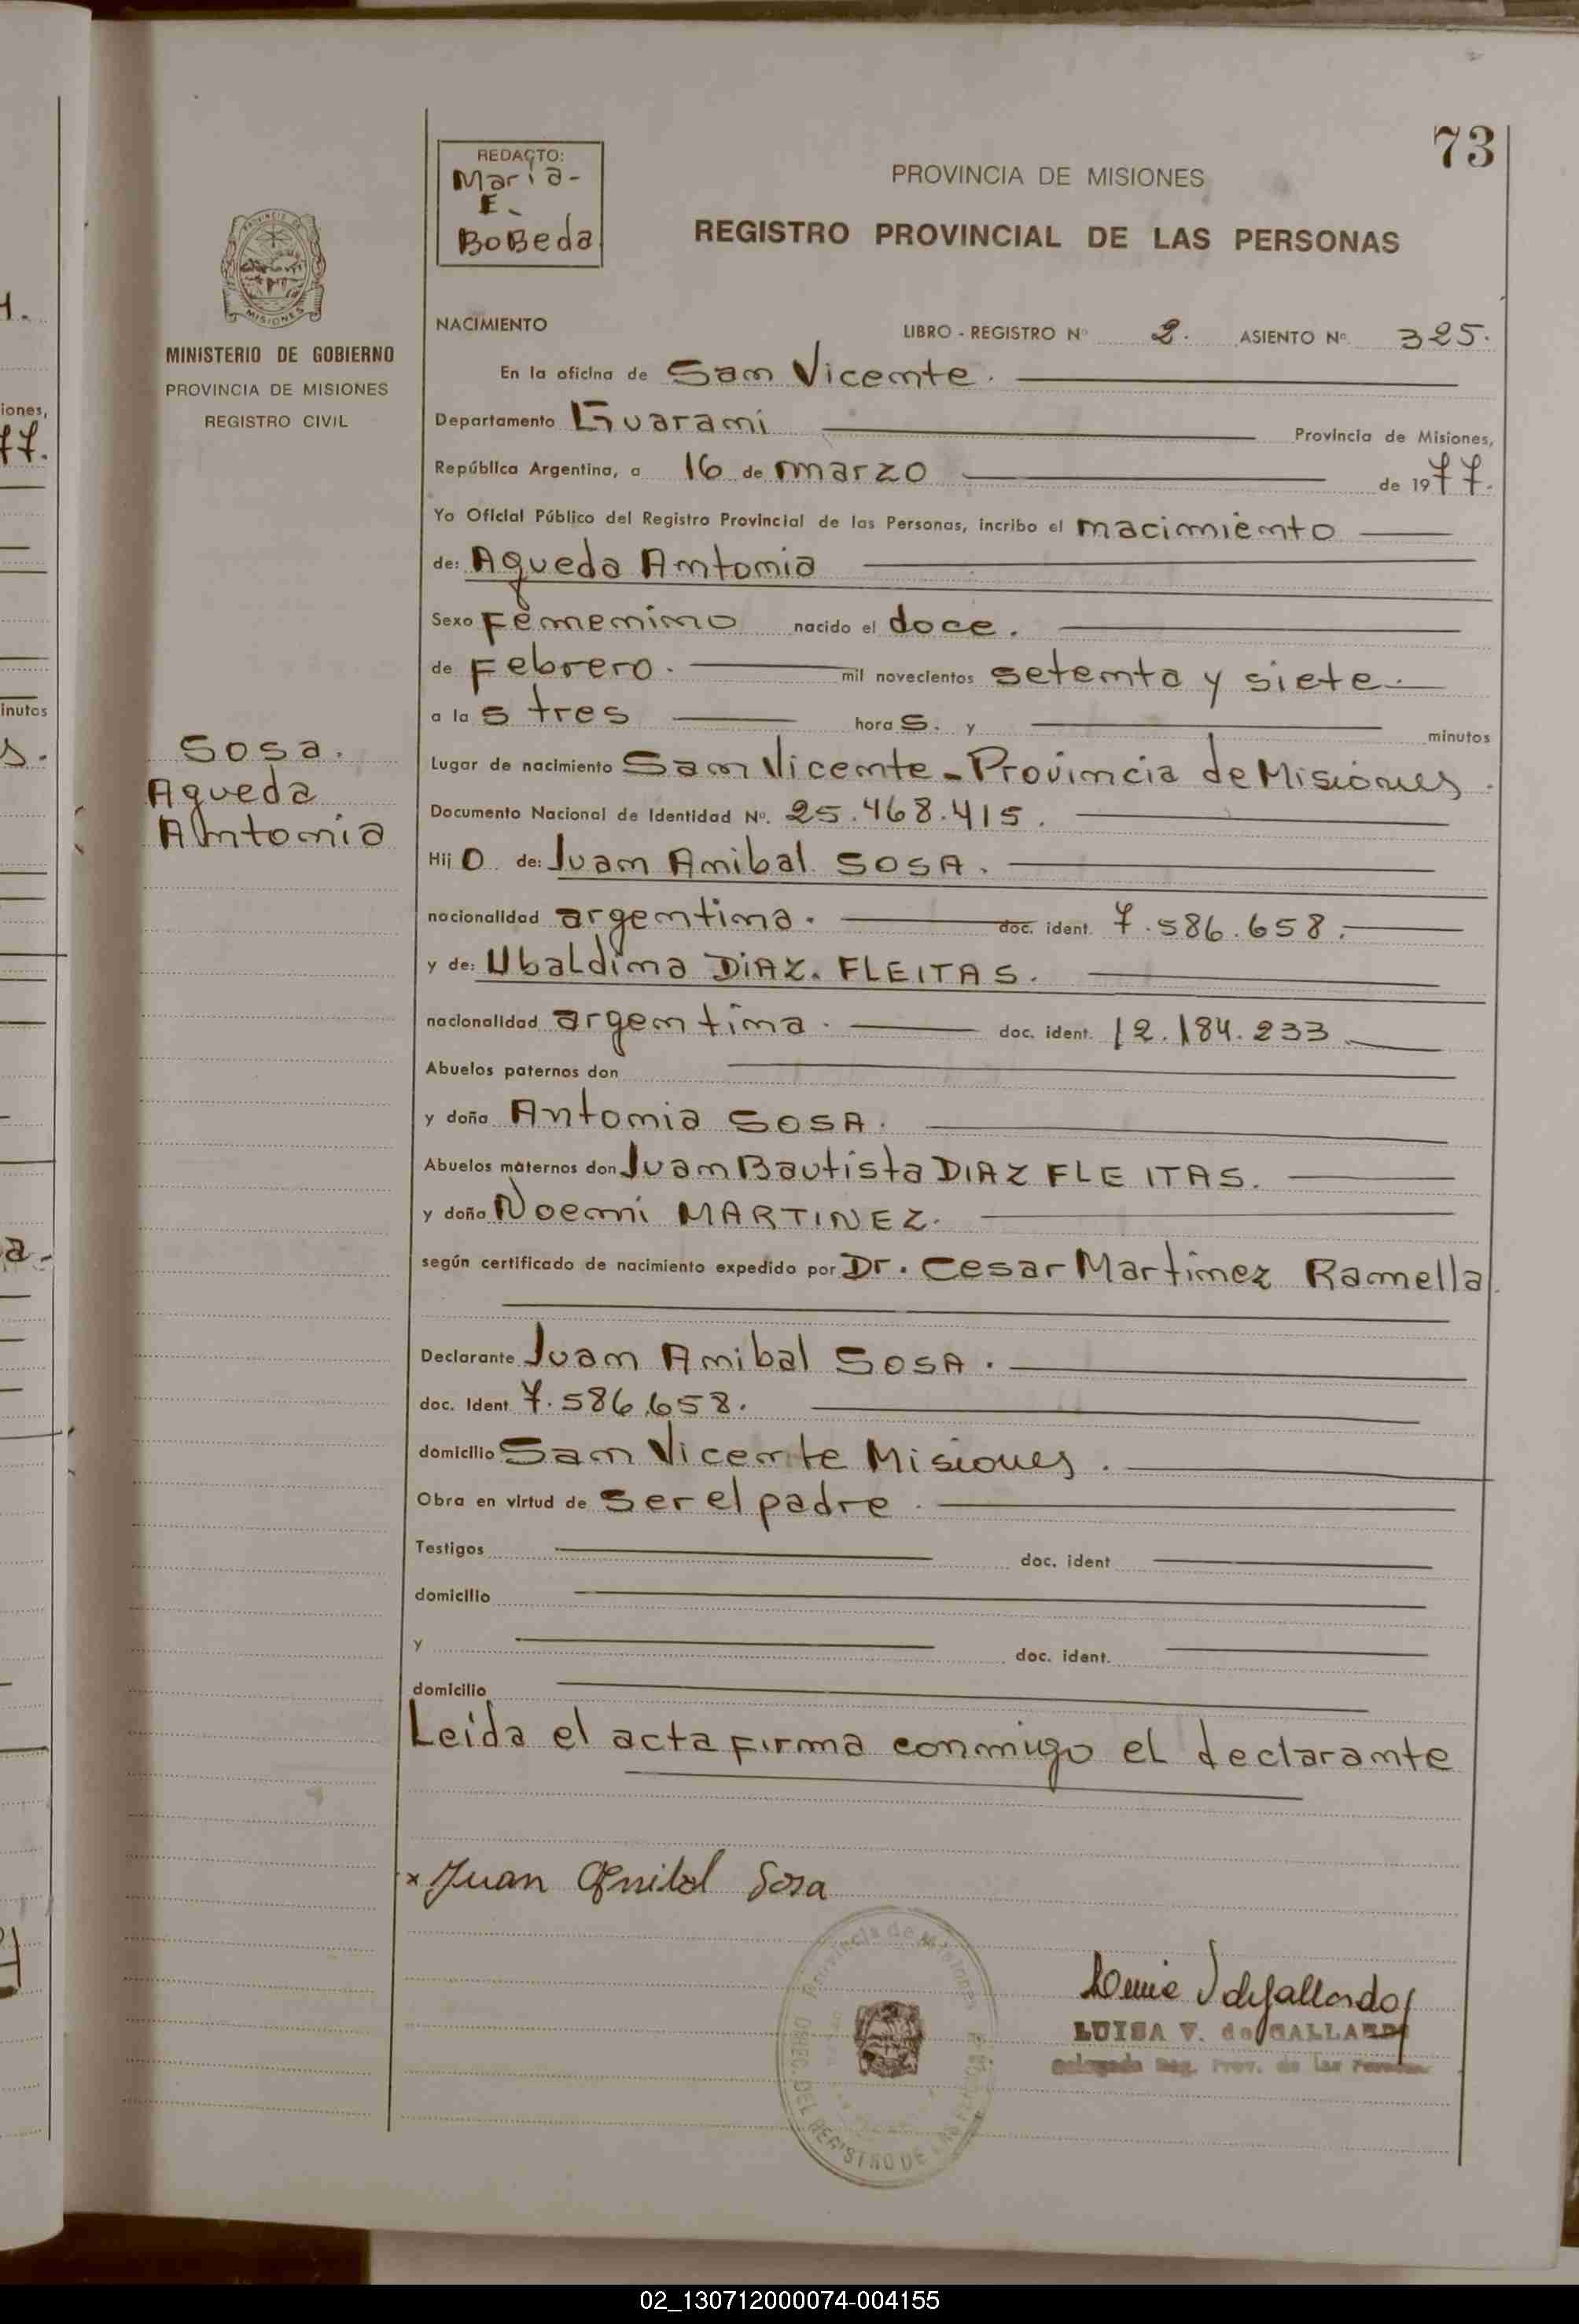 73
REDACTO:
Maria-
E.
BoBeda
PROVINCIA DE MISIONES
REGISTRO PROVINCIAL DE LAS PERSONAS
MISIONES
MINISTERIO DE GOBIERNO
PROVINCIA DE MISIONES
REGISTRO CIVIL
NACIMIENTO LIBRO - REGISTRO Nº 2. ASIENTO Nº 325.
En la oficina de San Vicente.
Departamento Guarani Provincia de Misiones,
República Argentina, a 16 de marzo de 1977.
Yo Oficial Público del Registro Provincial de las Personas, incribo el nacimiento
de: Agueda Antonia
Sexo Femenino nacido el doce.
de Febrero. mil novecientos setenta y siete.
a las tres horas. y minutos
Lugar de nacimiento San Vicente - Provincia de Misiones.
Documento Nacional de Identidad Nº. 25.468.415.
Hijo de: Juan Anibal SOSA.
nacionalidad argentina. doc. ident. 7.586.658.
y de: Ubaldina DIAZ. FLEITAS.
nacionalidad argentina. doc. ident. 12.184.233
Abuelos paternos don
y doña Antonia SOSA.
Abuelos maternos don Juan Bautista DIAZ FLEITAS.
y doña Noemi MARTINEZ.
según certificado de nacimiento expedido por Dr. Cesar Martinez Ramella.
Declarante Juan Anibal SOSA.
doc. Ident 7.586.658.
domicilio San Vicente Misiones.
Obra en virtud de ser el padre.
Testigos doc. ident
domicilio
y doc. ident.
domicilio
Leida el acta firma conmigo el declarante
Sosa.
Agueda
Antonia
x Juan Anibal Sosa
Provincia de Misiones
DIREC. DEL REGISTRO DE LAS
LUISA V. de GALLARDO
Delegada Reg. Prov. de las Personas
iones,
77.
inutos
s.
a.
02_130712000074-004155